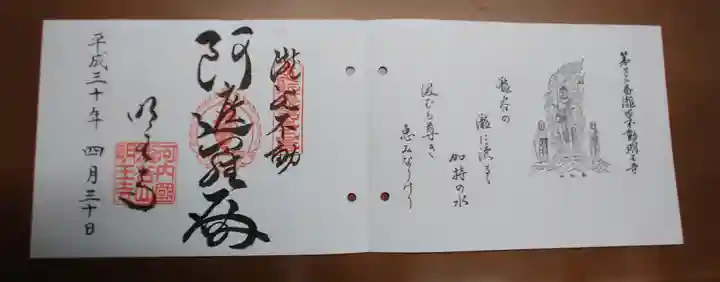 瀧谷不動明王寺
谷の
瀧に
加持の水
汲むも尊き
恵みなりけり
瀧谷不動
阿遮羅殿
明王寺
河内國
明王寺
平成三十年 四月三十日